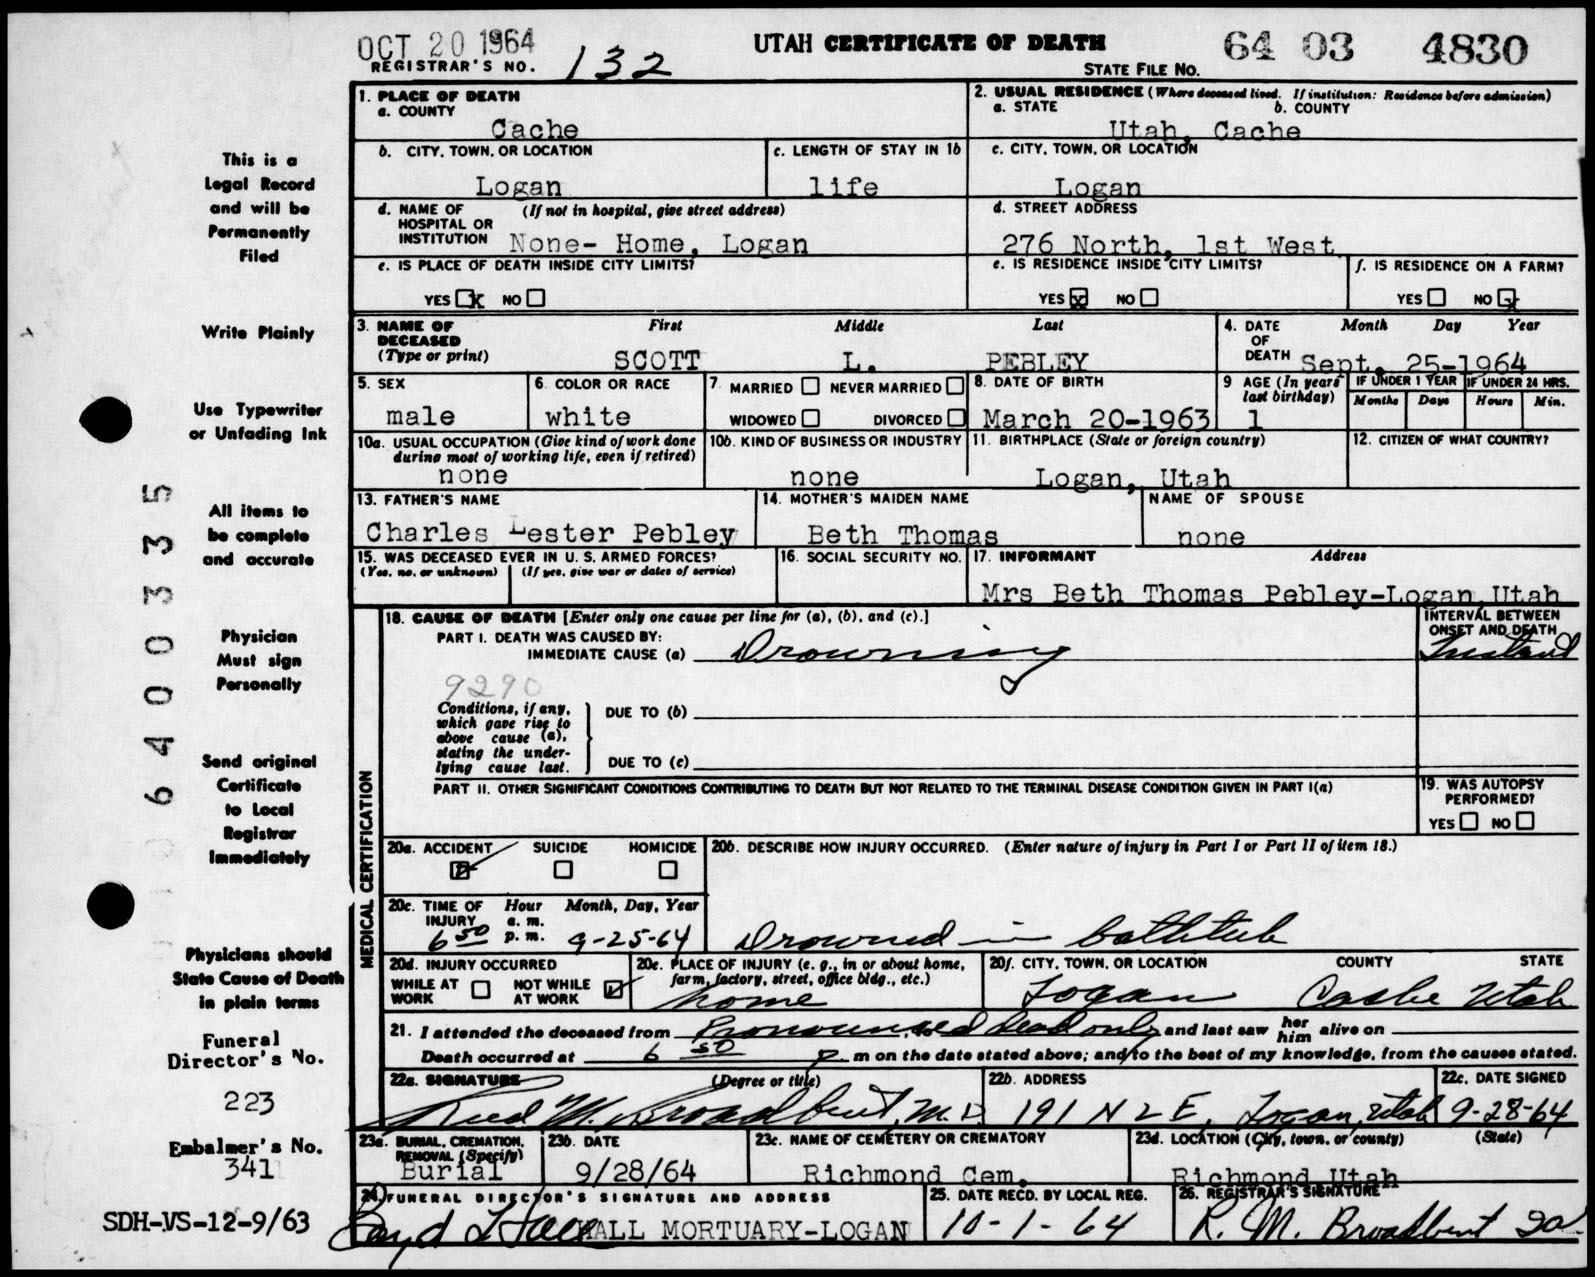 OCT 20 1964
REGISTRAR'S NO. 132
UTAH CERTIFICATE OF DEATH
STATE FILE NO. 64 03 4830
This is a
Legal Record
and will be
Permanently
Filed
Write Plainly
Use Typewriter
or Unfading Ink
All items to
be complete
and accurate
Physician
Must sign
Personally
Send original
Certificate
to Local
Registrar
Immediately
Physicians should
State Cause of Death
in plain terms
Funeral
Director's No.
223
Embalmer's No.
341
SDH-VS-12-9/63
6400335
1. PLACE OF DEATH
a. COUNTY
Cache
2. USUAL RESIDENCE (Where deceased lived. If institution: Residence before admission)
a. STATE b. COUNTY
Utah, Cache
b. CITY, TOWN, OR LOCATION
Logan
c. LENGTH OF STAY IN 1b
life
c. CITY, TOWN, OR LOCATION
Logan
d. NAME OF (If not in hospital, give street address)
HOSPITAL OR
INSTITUTION None- Home, Logan
d. STREET ADDRESS
276 North, 1st West
e. IS PLACE OF DEATH INSIDE CITY LIMITS?
YES x NO
e. IS RESIDENCE INSIDE CITY LIMITS?
YES x NO
f. IS RESIDENCE ON A FARM?
YES NO x
3. NAME OF First Middle Last
DECEASED
(Type or print) SCOTT L. PEBLEY
4. DATE Month Day Year
OF
DEATH Sept. 25-1964
5. SEX
male
6. COLOR OR RACE
white
7. MARRIED NEVER MARRIED
WIDOWED DIVORCED
8. DATE OF BIRTH
March 20-1963
9 AGE (In years
last birthday)
1
IF UNDER 1 YEAR IF UNDER 24 HRS.
Months Days Hours Min.
10a. USUAL OCCUPATION (Give kind of work done
during most of working life, even if retired)
none
10b. KIND OF BUSINESS OR INDUSTRY
none
11. BIRTHPLACE (State or foreign country)
Logan, Utah
12. CITIZEN OF WHAT COUNTRY?
13. FATHER'S NAME
Charles Lester Pebley
14. MOTHER'S MAIDEN NAME
Beth Thomas
NAME OF SPOUSE
none
15. WAS DECEASED EVER IN U. S. ARMED FORCES?
(Yes, no, or unknown) (If yes, give war or dates of service)
16. SOCIAL SECURITY NO.
17. INFORMANT Address
Mrs Beth Thomas Pebley-Logan Utah
MEDICAL CERTIFICATION
18. CAUSE OF DEATH [Enter only one cause per line for (a), (b), and (c).]
PART I. DEATH WAS CAUSED BY:
IMMEDIATE CAUSE (a) Drowning
INTERVAL BETWEEN
ONSET AND DEATH
Instant
9290
Conditions, if any,
which gave rise to
above cause (a),
stating the under-
lying cause last.
DUE TO (b)
DUE TO (c)
PART II. OTHER SIGNIFICANT CONDITIONS CONTRIBUTING TO DEATH BUT NOT RELATED TO THE TERMINAL DISEASE CONDITION GIVEN IN PART I(a)
19. WAS AUTOPSY
PERFORMED?
YES NO
20a. ACCIDENT SUICIDE HOMICIDE
20b. DESCRIBE HOW INJURY OCCURRED. (Enter nature of injury in Part I or Part II of item 18.)
Drowned in bathtub
20c. TIME OF Hour Month, Day, Year
INJURY a. m.
6 50 p. m. 9-25-64
20d. INJURY OCCURRED
WHILE AT NOT WHILE
WORK AT WORK
20e. PLACE OF INJURY (e. g., in or about home,
farm, factory, street, office bldg., etc.)
home
20f. CITY, TOWN, OR LOCATION COUNTY STATE
Logan Cache Utah
21. I attended the deceased from Pronounced dead only and last saw her him alive on
Death occurred at 6 50 p m on the date stated above; and to the best of my knowledge, from the causes stated.
22a. SIGNATURE (Degree or title)
Reed M. Broadbent, M.D.
22b. ADDRESS
191 N 2 E, Logan, Utah
22c. DATE SIGNED
9-28-64
23a. BURIAL, CREMATION,
REMOVAL (Specify)
Burial
23b. DATE
9/28/64
23c. NAME OF CEMETERY OR CREMATORY
Richmond Cem.
23d. LOCATION (City, town, or county) (State)
Richmond Utah
24. FUNERAL DIRECTOR'S SIGNATURE AND ADDRESS
Boyd L Hall HALL MORTUARY-LOGAN
25. DATE RECD. BY LOCAL REG.
10-1-64
26. REGISTRAR'S SIGNATURE
R. M. Broadbent